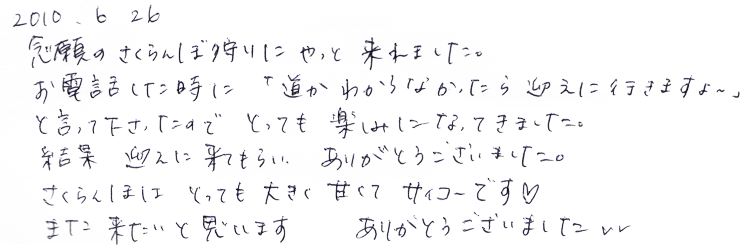 2010. 6 26
念願のさくらんぼ狩りにやっと来れました。
お電話した時に「道がわからなかったら迎えに行きますよ～」
と言って下さったのでとっても楽しみになってきました。
結果 迎えに来てもらい ありがとうございました。
さくらんぼはとっても大きく甘くてサイコーです♡
また来たいと思います ありがとうございました